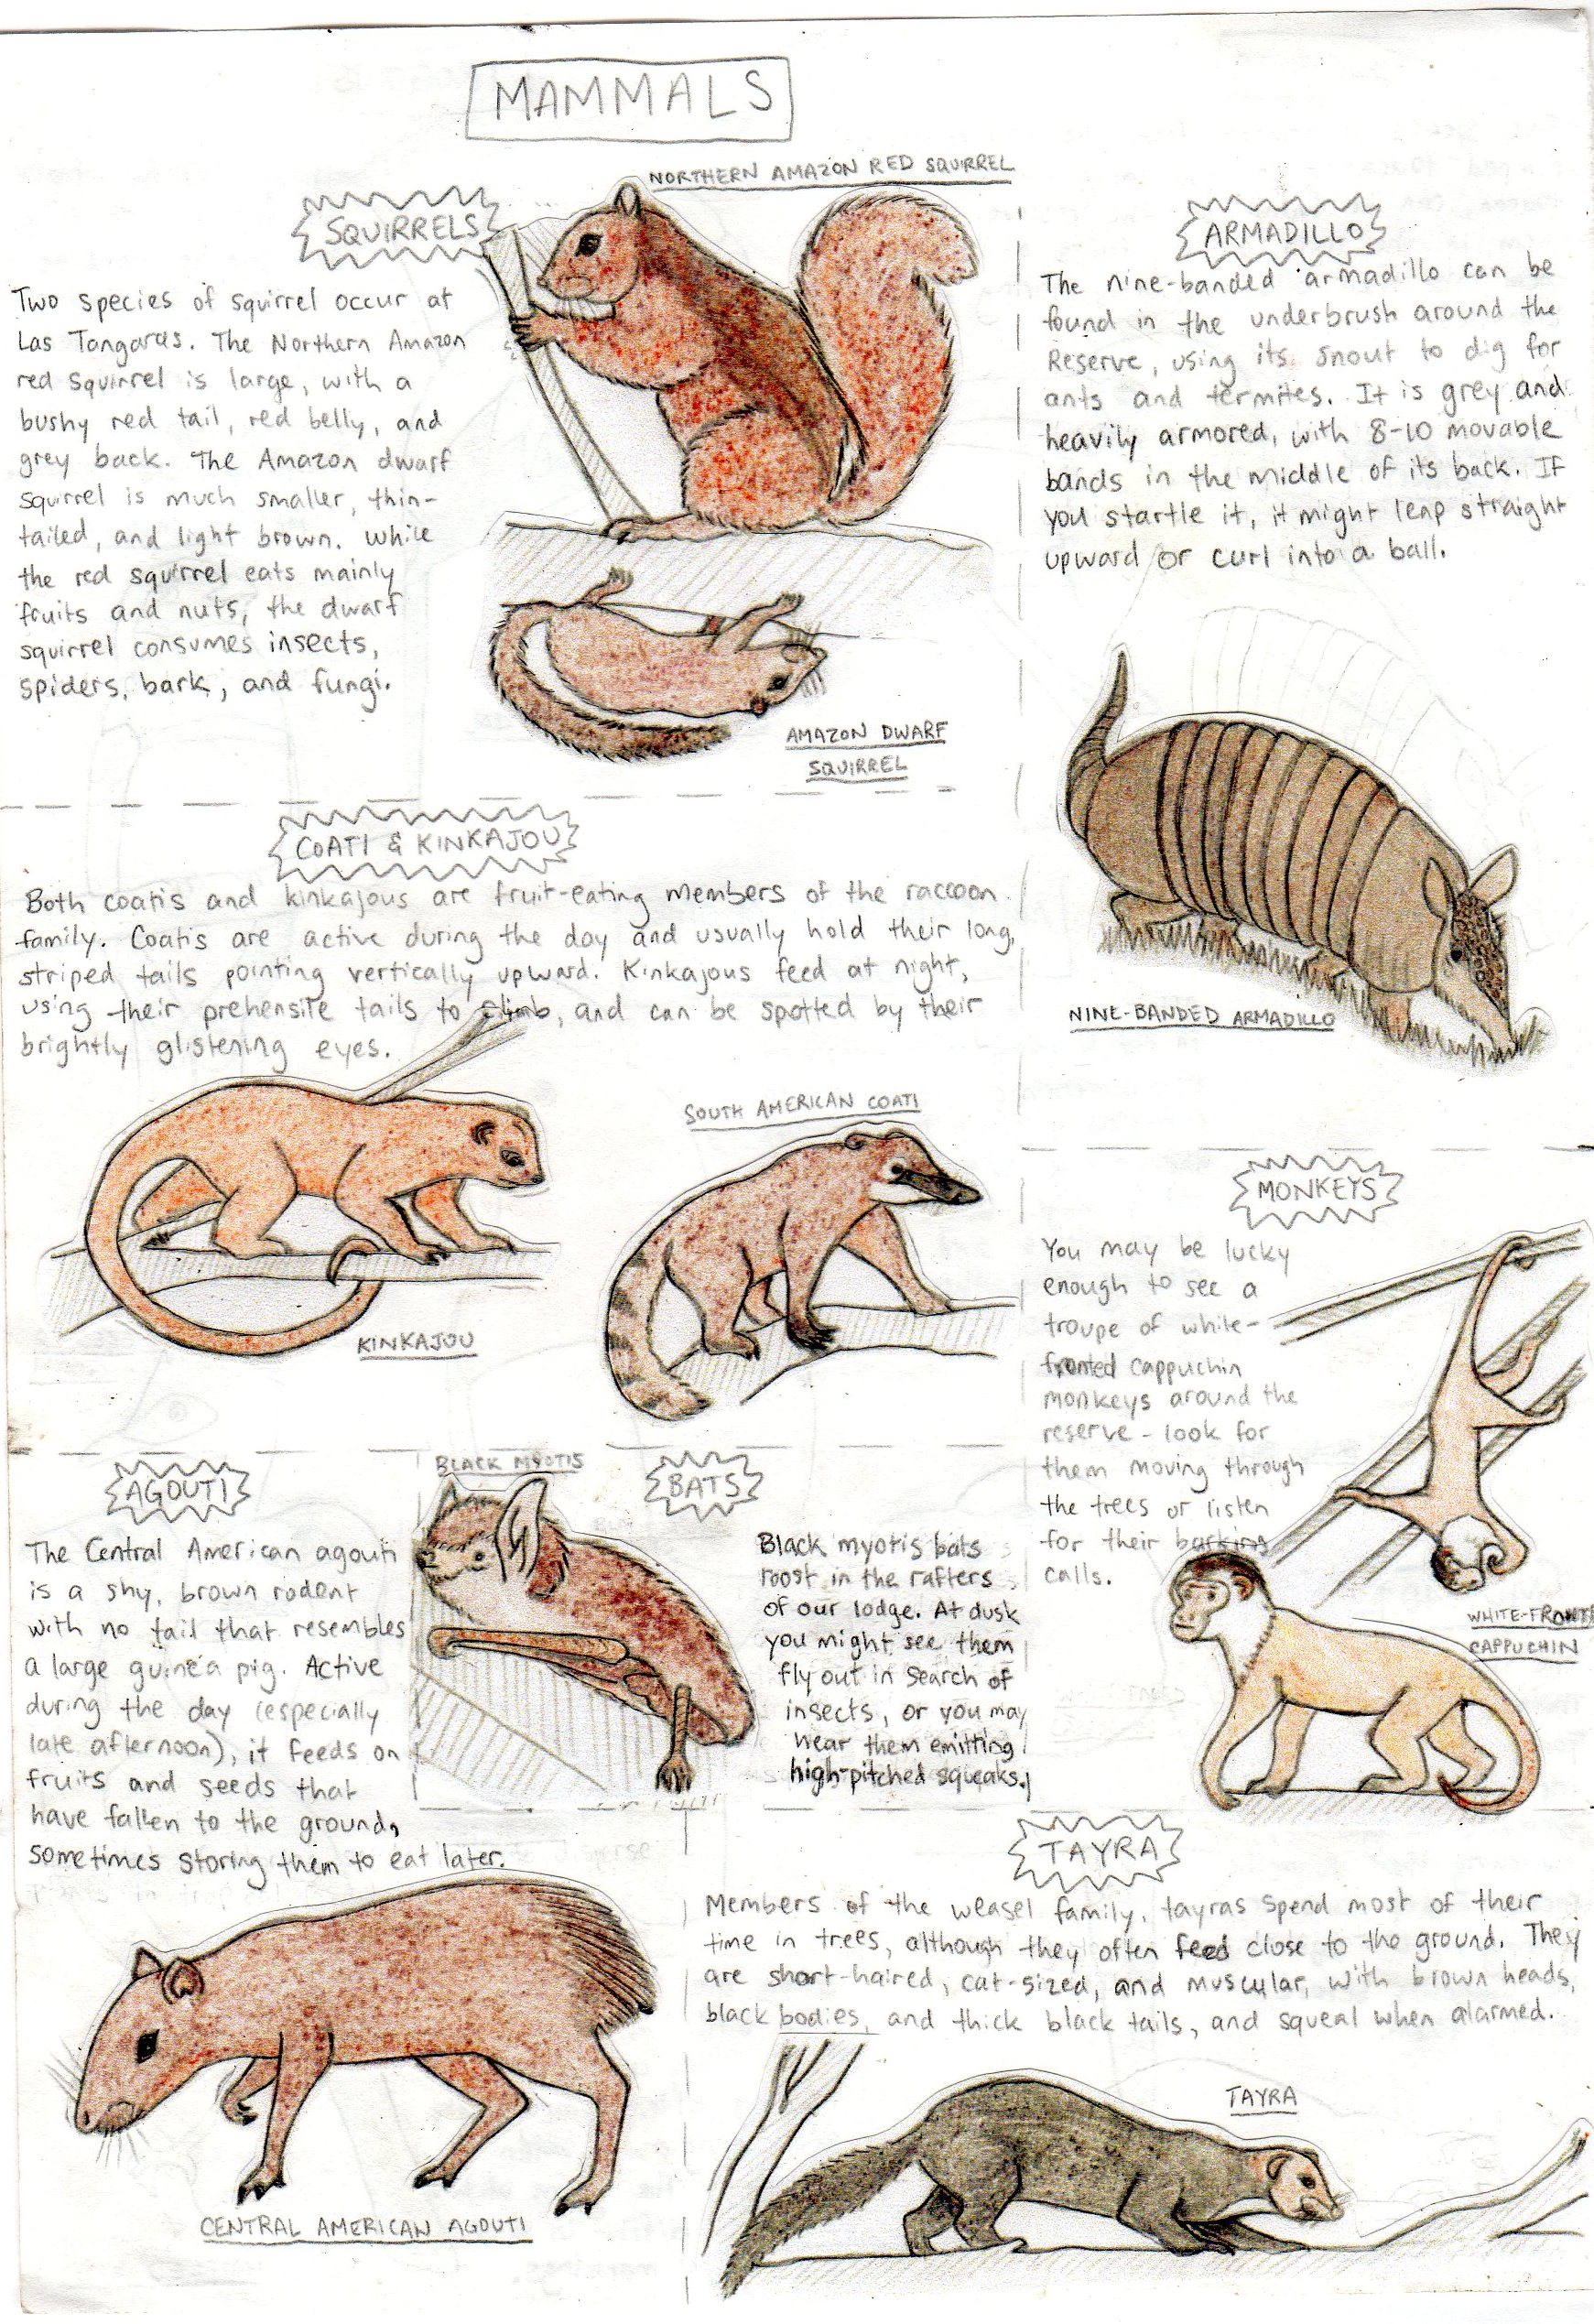 MAMMALS
NORTHERN AMAZON RED SQUIRREL
SQUIRRELS
Two species of squirrel occur at
Las Tangaras. The Northern Amazon
red squirrel is large, with a
bushy red tail, red belly, and
grey back. The Amazon dwarf
squirrel is much smaller, thin-
tailed, and light brown. While
the red squirrel eats mainly
fruits and nuts, the dwarf
squirrel consumes insects,
spiders, bark, and fungi.
AMAZON DWARF
SQUIRREL
ARMADILLO
The nine-banded armadillo can be
found in the underbrush around the
Reserve, using its snout to dig for
ants and termites. It is grey and
heavily armored, with 8-10 movable
bands in the middle of its back. If
you startle it, it might leap straight
upward or curl into a ball.
NINE-BANDED ARMADILLO
COATI & KINKAJOU
Both coatis and kinkajous are fruit-eating members of the raccoon
family. Coatis are active during the day and usually hold their long,
striped tails pointing vertically upward. Kinkajous feed at night,
using their prehensile tails to climb, and can be spotted by their
brightly glistening eyes.
KINKAJOU
SOUTH AMERICAN COATI
MONKEYS
You may be lucky
enough to see a
troupe of white-
fronted cappuchin
monkeys around the
reserve - look for
them moving through
the trees or listen
for their barking
calls.
WHITE-FRONT
CAPPUCHIN
AGOUTI
The Central American agouti
is a shy, brown rodent
with no tail that resembles
a large guinea pig. Active
during the day (especially
late afternoon), it feeds on
fruits and seeds that
have fallen to the ground,
sometimes storing them to eat later.
CENTRAL AMERICAN AGOUTI
BLACK MYOTIS
BATS
Black myotis bats
roost in the rafters
of our lodge. At dusk
you might see them
fly out in search of
insects, or you may
hear them emitting
high-pitched squeaks.
TAYRA
Members of the weasel family, tayras spend most of their
time in trees, although they often feed close to the ground. They
are short-haired, cat-sized, and muscular, with brown heads,
black bodies, and thick black tails, and squeal when alarmed.
TAYRA